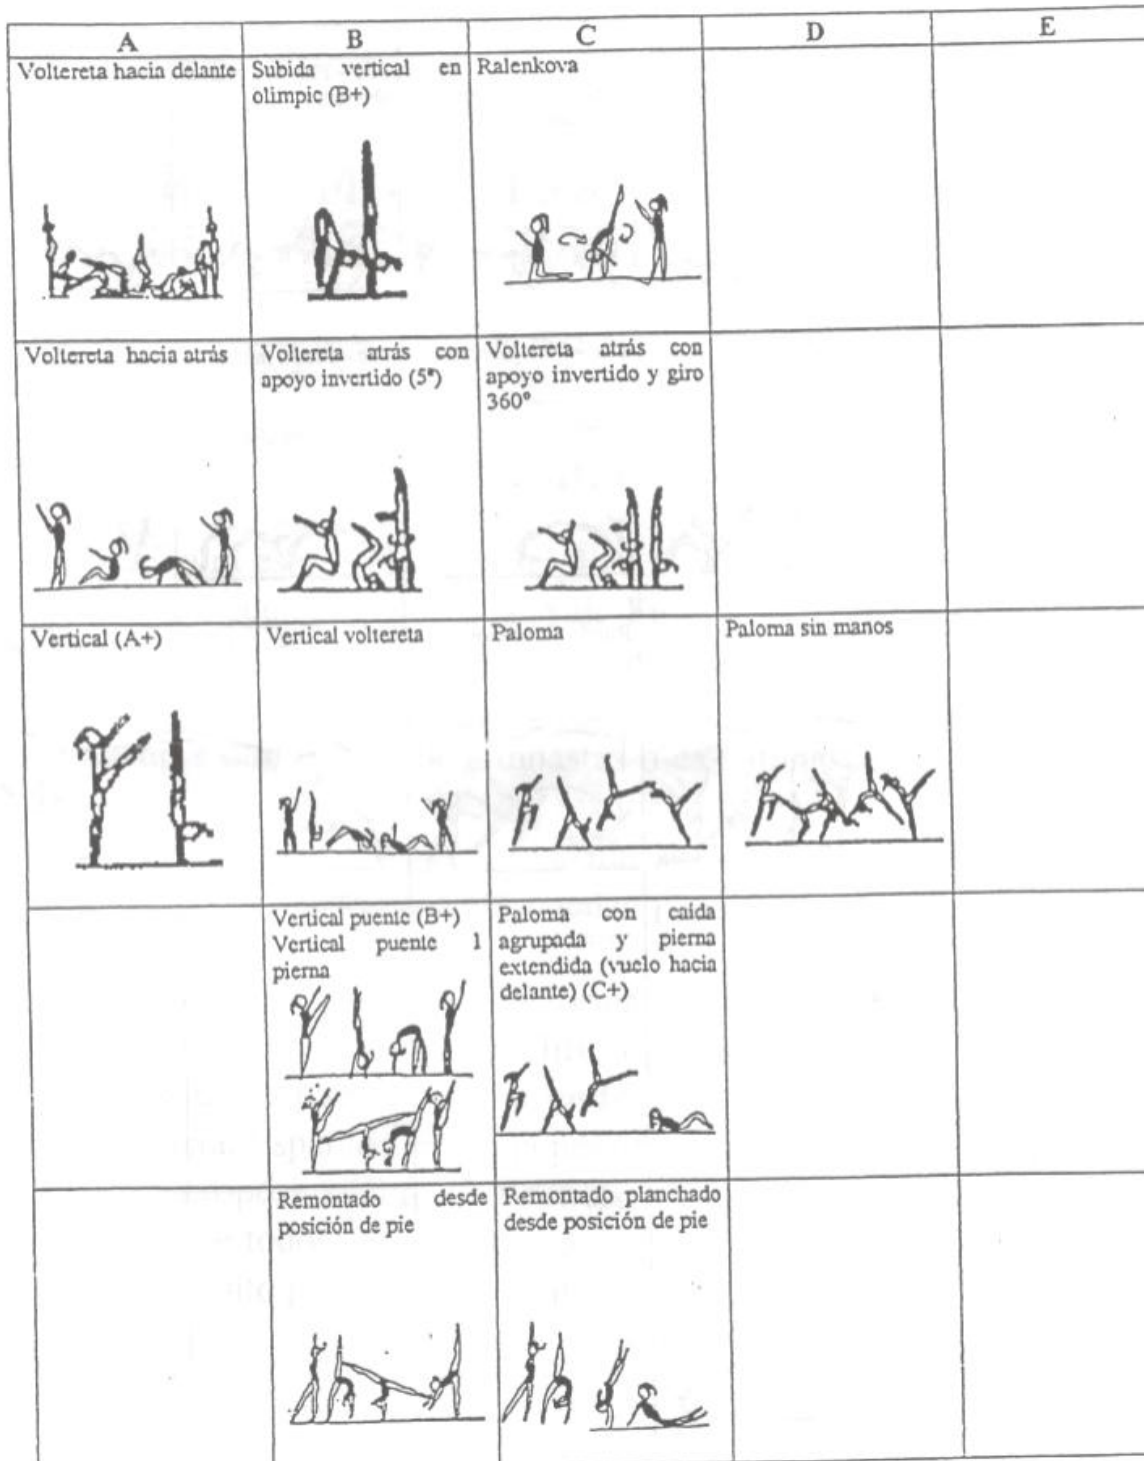 A
B
C
D
E
Voltereta hacia delante
Subida vertical en
olimpic (B+)
Ralenkova
Voltereta hacia atrás
Voltereta atrás con
apoyo invertido (5ª)
Voltereta atrás con
apoyo invertido y giro
360º
Vertical (A+)
Vertical voltereta
Paloma
Paloma sin manos
Vertical puente (B+)
Vertical puente 1
pierna
Paloma con caída
agrupada y pierna
extendida (vuelo hacia
delante) (C+)
Remontado desde
posición de pie
Remontado planchado
desde posición de pie